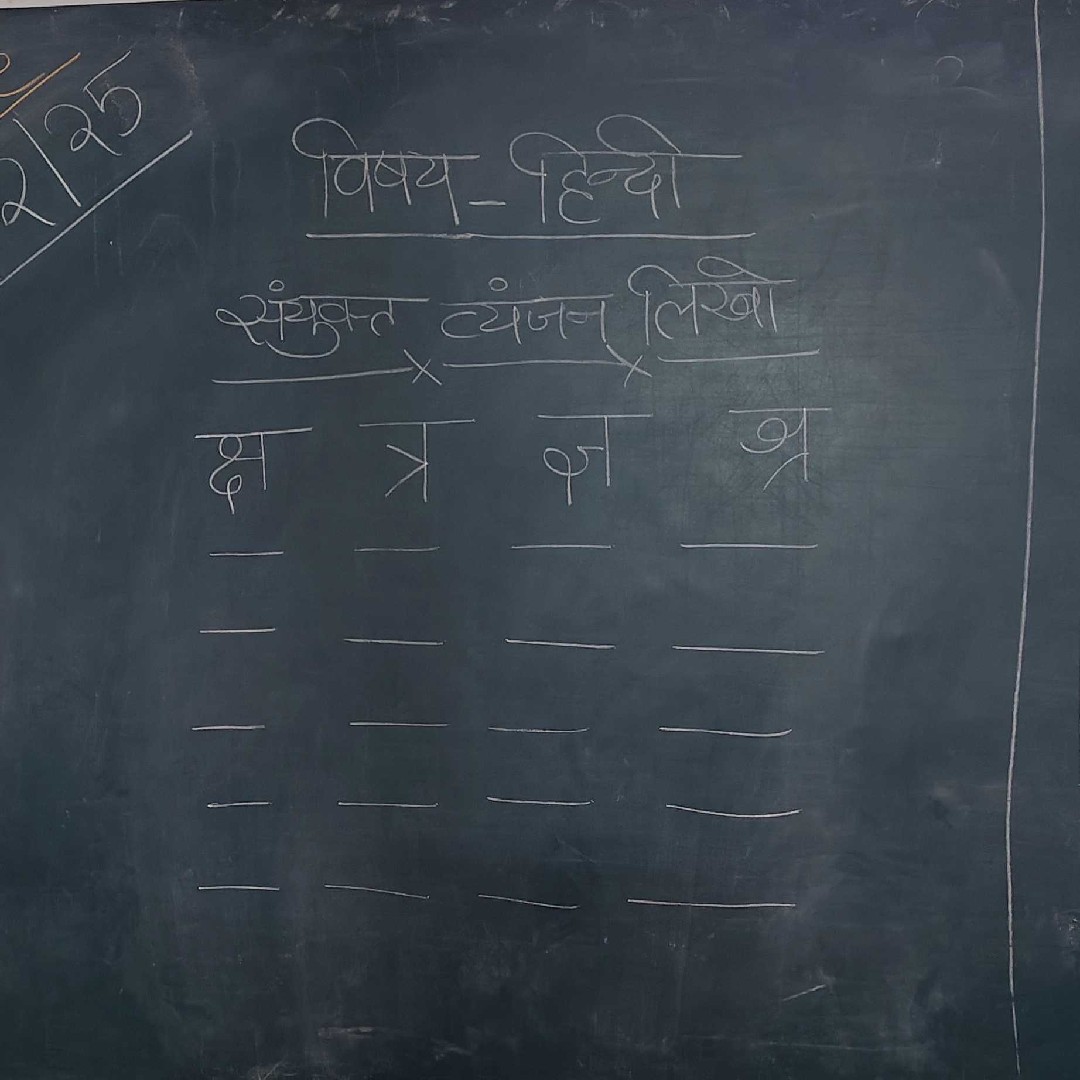 २|२५
विषय - हिन्दी
संयुक्त व्यंजन लिखो
क्ष त्र ज्ञ श्र